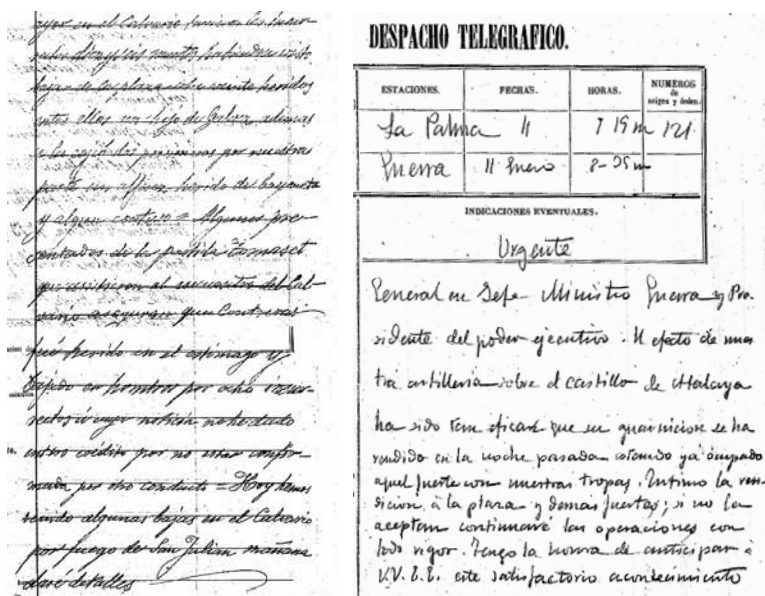 ayer en el Calvario tuvieron los insur-
rectos diez y seis muertos habiendo visto
bajar a la plaza ochocientos heridos
entre ellos un hijo de Galvez, además
se les cogió dos prisioneros por nuestra
parte un alferez herido de bayoneta
y algun contuso = Algunos pre-
sentados de la partida Tomaset
que asistieron al encuentro del Cal-
vario aseguran que Contreras
fué herido en el estómago y
bajado en hombros por ocho insur-
rectos á cuya noticia no he dado
entero crédito por no estar confir-
mada por otro conducto = Hoy hemos
tenido algunas bajas en el Calvario
por fuego de San Julian mañana
daré detalles
DESPACHO TELEGRAFICO.
ESTACIONES. FECHAS. HORAS. NUMEROS
de
origen y órden.
La Palma 11 7 15 m 121
Guerra 11 Enero 8-35 m
INDICACIONES EVENTUALES.
Urgente
General en Gefe Ministro Guerra y Pre-
sidente del poder ejecutivo. El efecto de nues
tra artilleria sobre el castillo de Atalaya
ha sido tan eficaz que su guarnicion se ha
rendido en la noche pasada estando ya ocupado
aquel fuerte con nuestras tropas. Intimo la ren-
dicion á la plaza y demas fuertes; si no la
aceptan continuaré las operaciones con
todo rigor. Tengo la honra de anticipar á
V.V. E.E. este satisfactorio acontecimiento